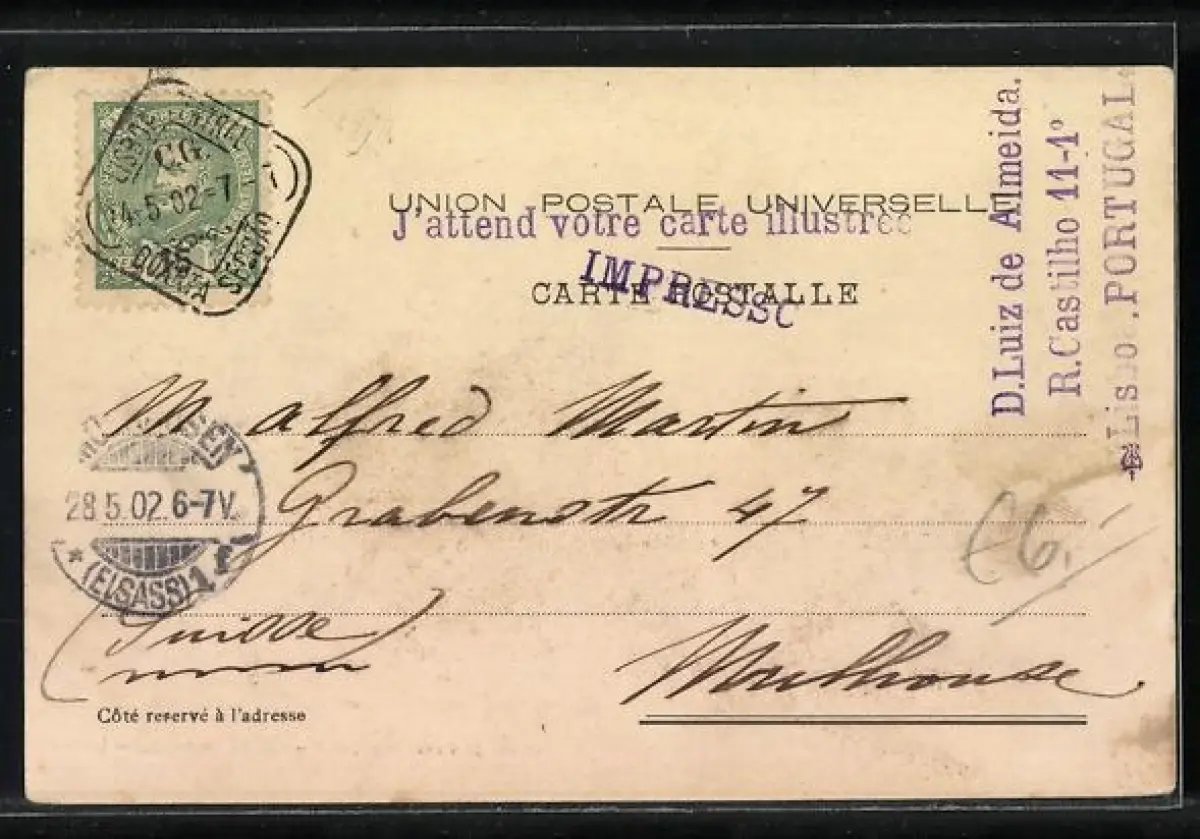 LISBOA CENTRAL
C.G.
14-5-02-7
QUARTA SECÇÃO
UNION POSTALE UNIVERSELLE
J'attend votre carte illustrée
IMPRESSO
CARTE POSTALLE
D.Luiz de Almeida.
R.Castilho 11-1º
Lisboa.PORTUGAL
M Alfred Martin
Grabenstr 47
(Suisse)
Mulhouse
28.5.02.6-7V.
* (ELSASS) 1
€6.
Côté reservé à l'adresse